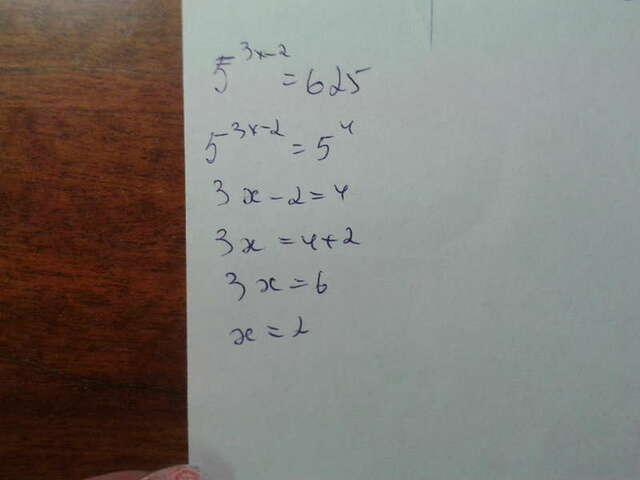 5^{3x-2} = 625
5^{3x-2} = 5^4
3x - 2 = 4
3x = 4 + 2
3x = 6
x = 2